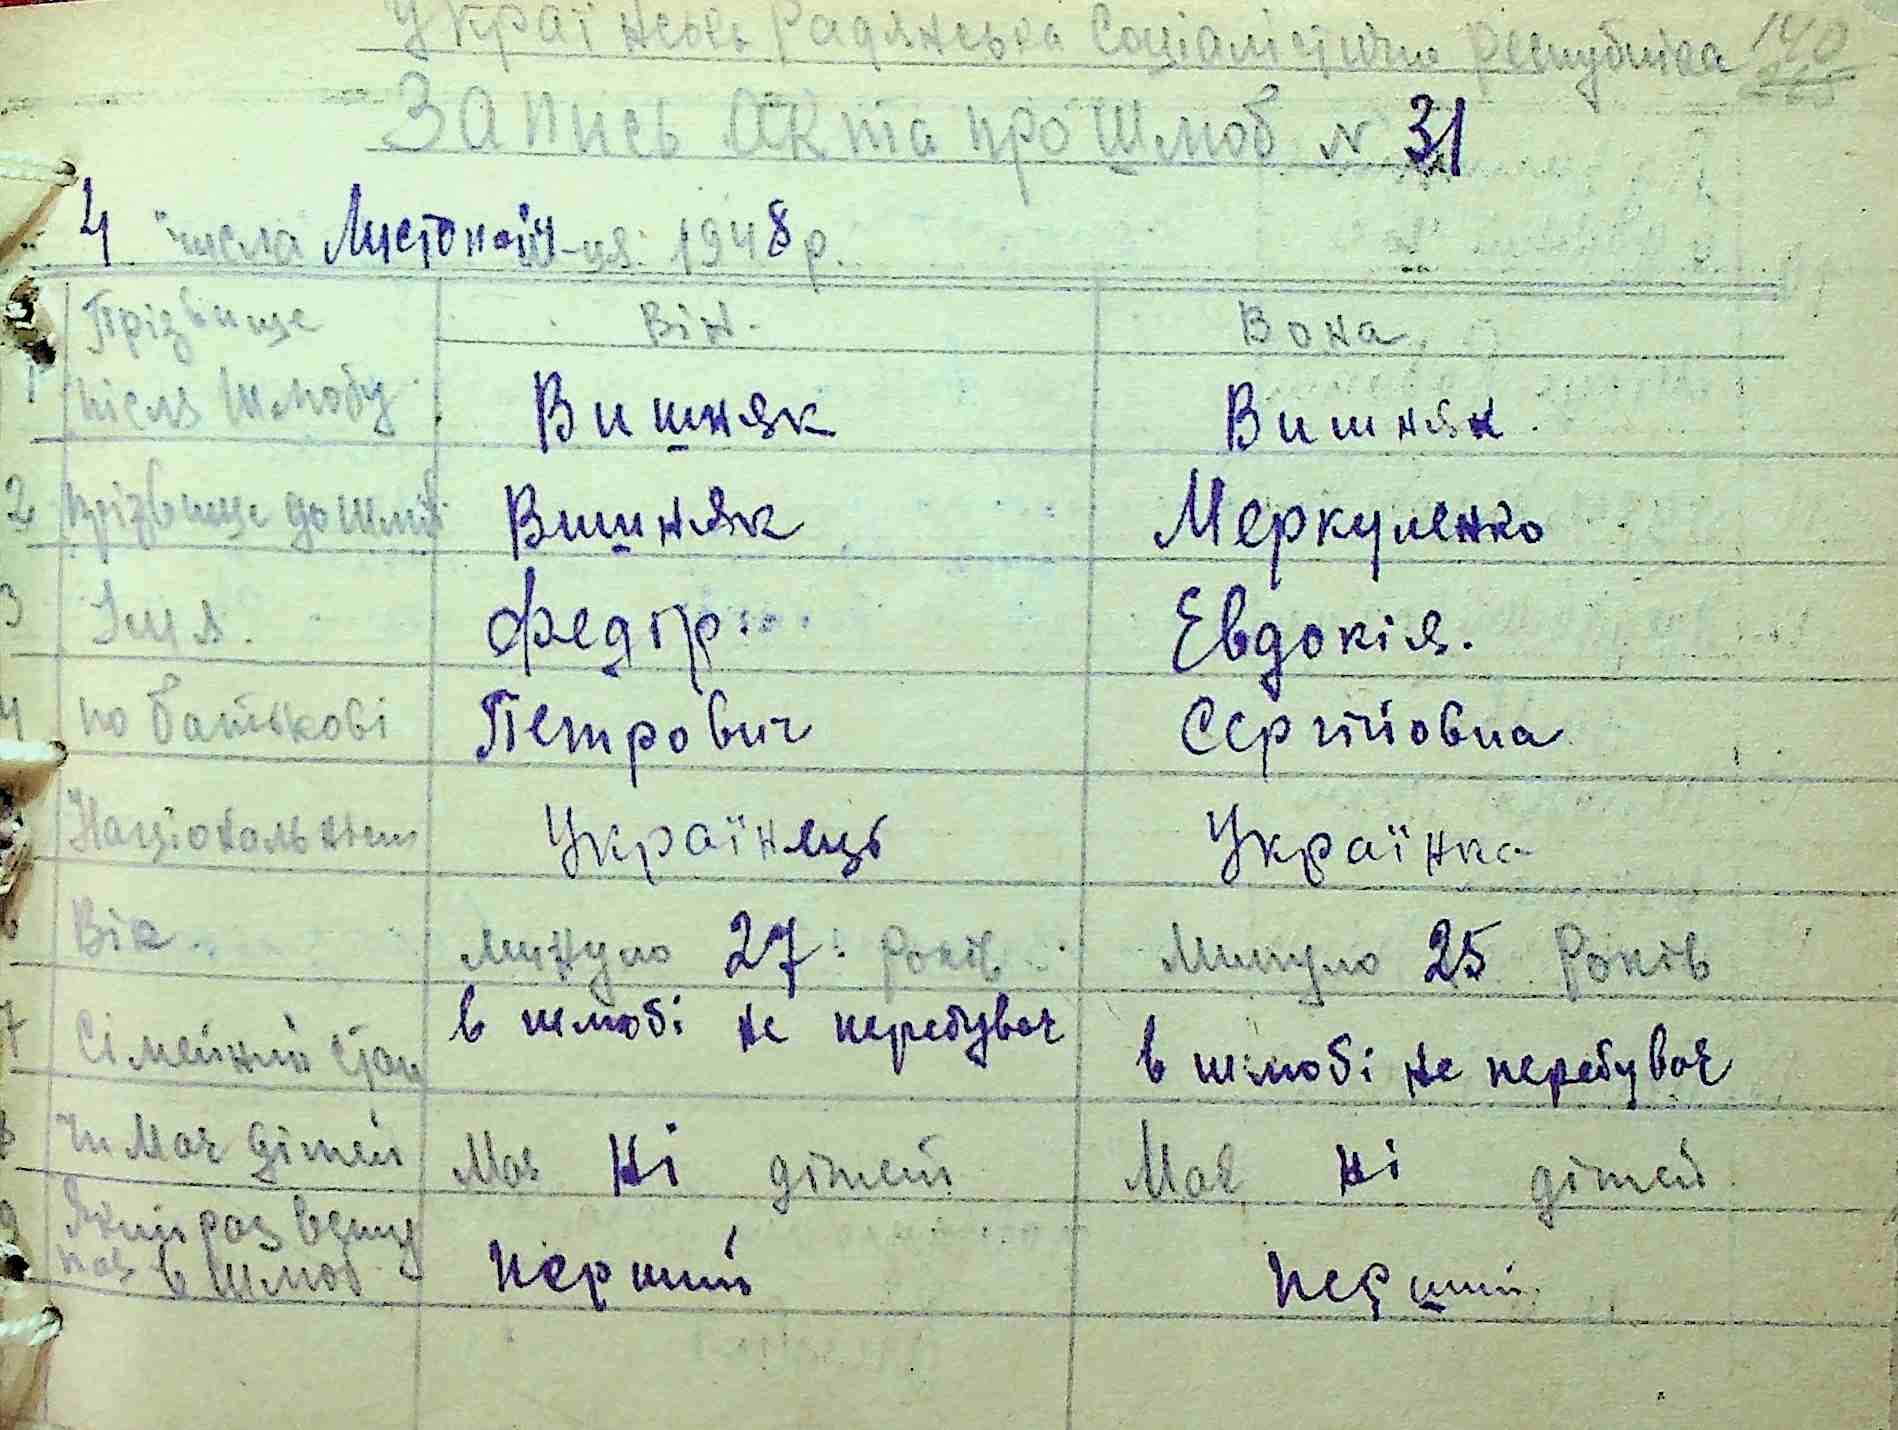 Українська Радянська Соціалістична Республіка 140
Запись Акта про Шлюб № 31
4 числа м-ця 1948 р.
Він. Вона
1 Прізвище
після шлюбу Вишняк Вишняк.
2 прізвище до шлюб Вишняк Меркуленко
3 Імя. Федір Евдокія.
4 по батькові Петрович Сергіїовна
Національність Українець Українка
6 Вік. Минуло 27 Років Минуло 25 Років
7 Сімейний стан в шлюбі не перебував в шлюбі не перебував
8 Чи Має дітей Має Ні дітей Має ні дітей
9 Який раз всту
пає в шлюб перший перший